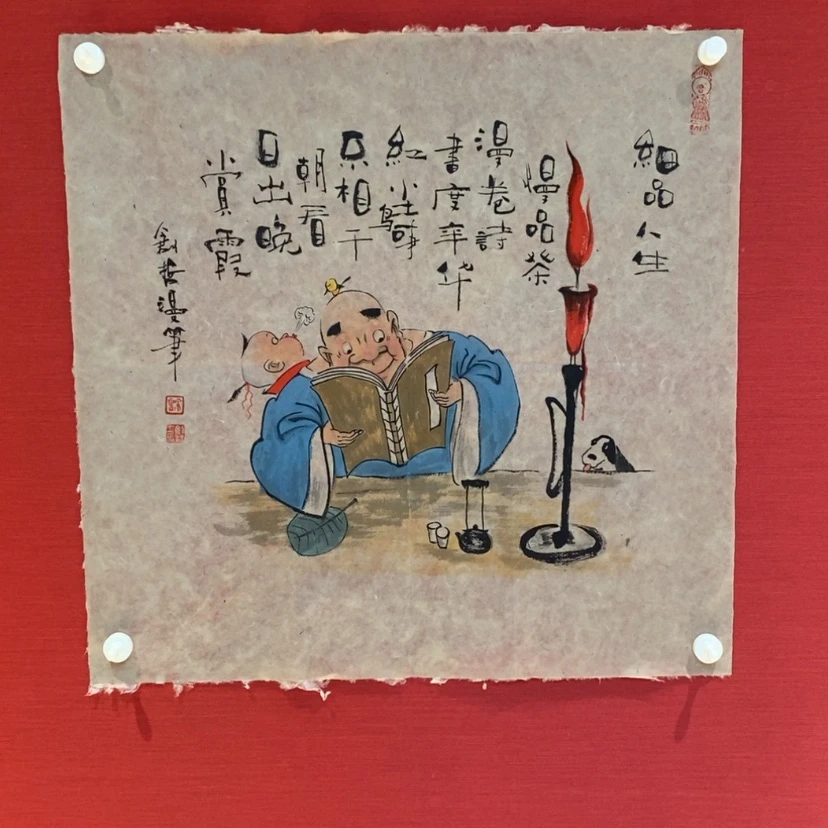 細品人生
慢品茶
漫卷詩
書度年华
紅尘鳥事
不相干
朝看
日出晚
賞霞
哲漫筆